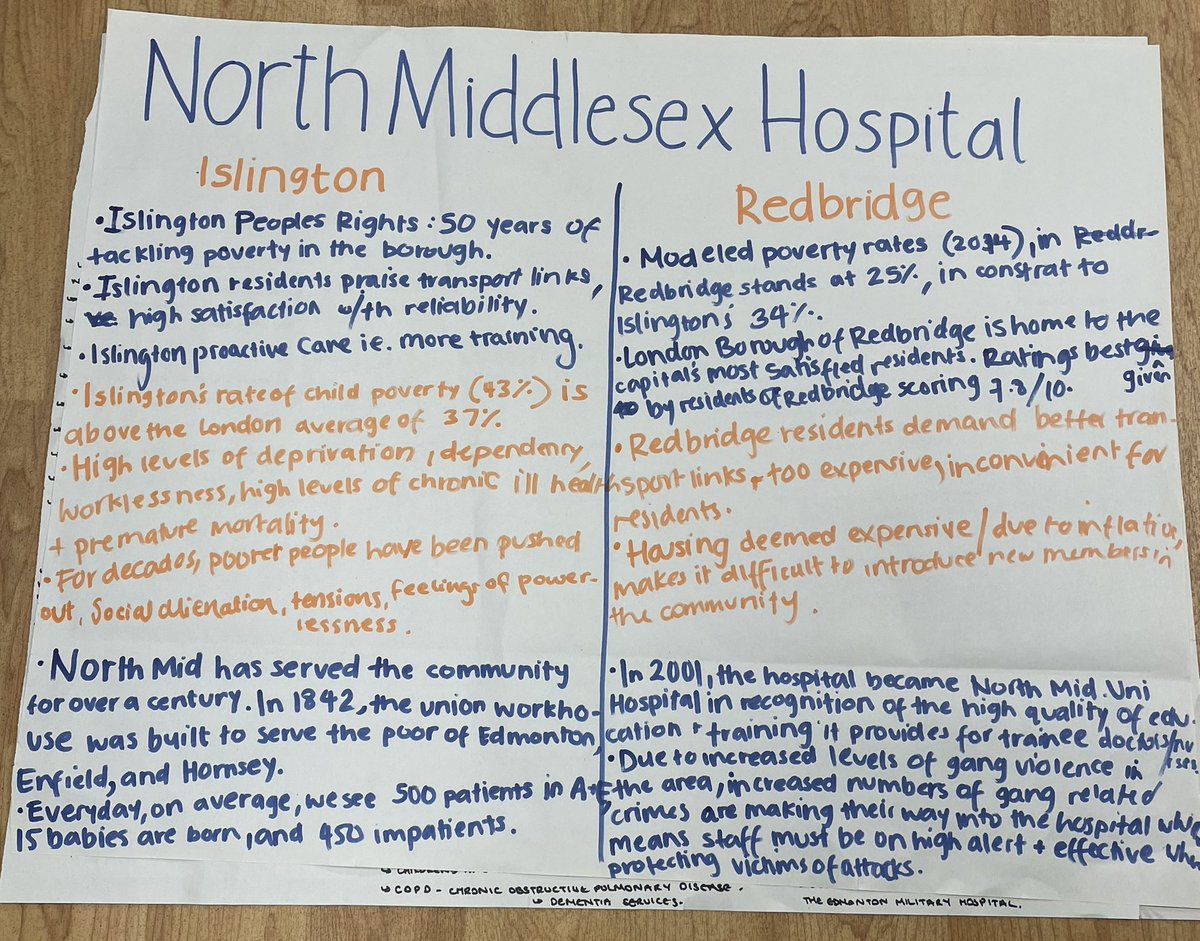 North Middlesex Hospital
Islington
• Islington Peoples Rights : 50 years of
tackling poverty in the borough.
• Islington residents praise transport links,
high satisfaction w/th reliability.
• Islington proactive care ie. more training.
• Islington's rate of child poverty (43%) is
above the London average of 37%.
• High levels of deprivation, dependency,
worklessness, high levels of chronic ill health
+ premature mortality.
• For decades, poorer people have been pushed
out, Social alienation, tensions, feelings of power-
lessness.
• North Mid has served the community
for over a century. In 1842, the union workho-
use was built to serve the poor of Edmonton,
Enfield, and Hornsey.
• Everyday, on average, we see 500 patients in A+E,
15 babies are born, and 450 impatients.
Redbridge
• Modeled poverty rates (2014), in Reddr-
Redbridge stands at 25%, in constrat to
Islington's 34%.
• London Borough of Redbridge is home to the
capital's most satisfied residents. Ratings best
given
by residents of Redbridge scoring 7.8/10.
• Redbridge residents demand better tran-
sport links - too expensive, inconvenient for
residents.
• Housing deemed expensive / due to inflation,
makes it difficult to introduce new members in
the community.
• In 2001, the hospital became North Mid. Uni
Hospital in recognition of the high quality of edu-
cation + training it provides for trainee doctors/nu
rses
• Due to increased levels of gang violence in
the area, increased numbers of gang related
crimes are making their way into the hospital
means staff must be on high alert + effective
protecting victims of attacks.
↳ COPD - CHRONIC OBSTRUCTIVE PULMONARY DISEASE.
↳ DEMENTIA SERVICES.
THE EDMONTON MILITARY HOSPITAL.